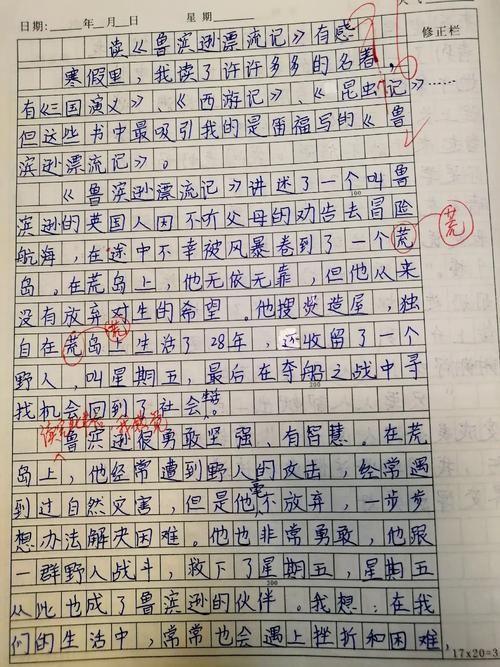 日期： 年 月 日 星期
修正栏
读《鲁滨逊漂流记》有感
寒假里，我读了许许多多的名著，
有《三国演义》、《西游记》、《昆虫记》……
但这些书中最吸引我的是雷福写的《鲁
滨逊漂流记》。
《鲁滨逊漂流记》讲述了一个叫鲁
100
滨逊的英国人因不听父母的劝告去冒险
航海，在途中不幸被风暴卷到了一个荒
荒
岛。在荒岛上，他无依无靠，但他从来
没有放弃对生的希望。他搜炎造屋，独
荒
自在荒岛上生活了28年，还收留了一个
野人，叫星期五，最后在夺船之战中寻
200
找机会回到了社会。
鲁滨逊很勇敢坚强、有智慧。在荒
岛上，他经常遭到野人的攻击，经常遇
到过自然灾害，但是他毫不放弃，一步步
想办法解决困难。他也非常勇敢，他跟
一群野人战斗，救下了星期五，星期五
300
从此也成了鲁滨逊的伙伴。我想：在我
们的生活中，常常也会遇上挫折和困难，
17×20=3